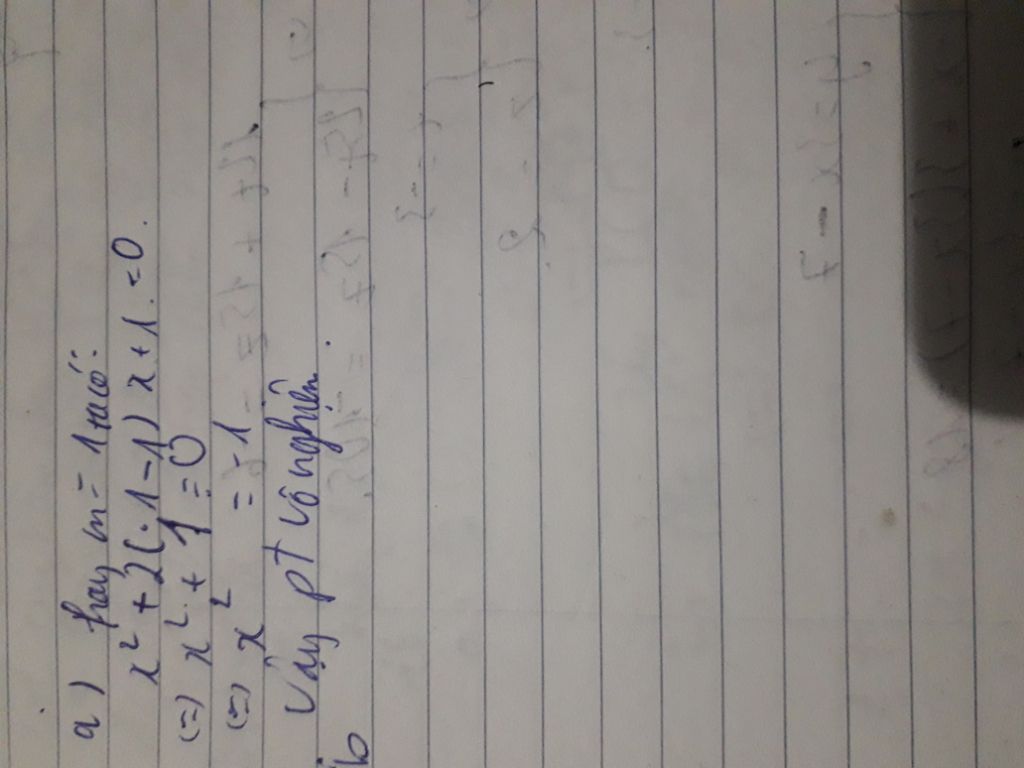 a) thay m = 1 ta có:
x² + 2(1-1)x + 1 = 0.
(=) x² + 1 = 0
(=) x² = -1
Vậy PT vô nghiệm.
b